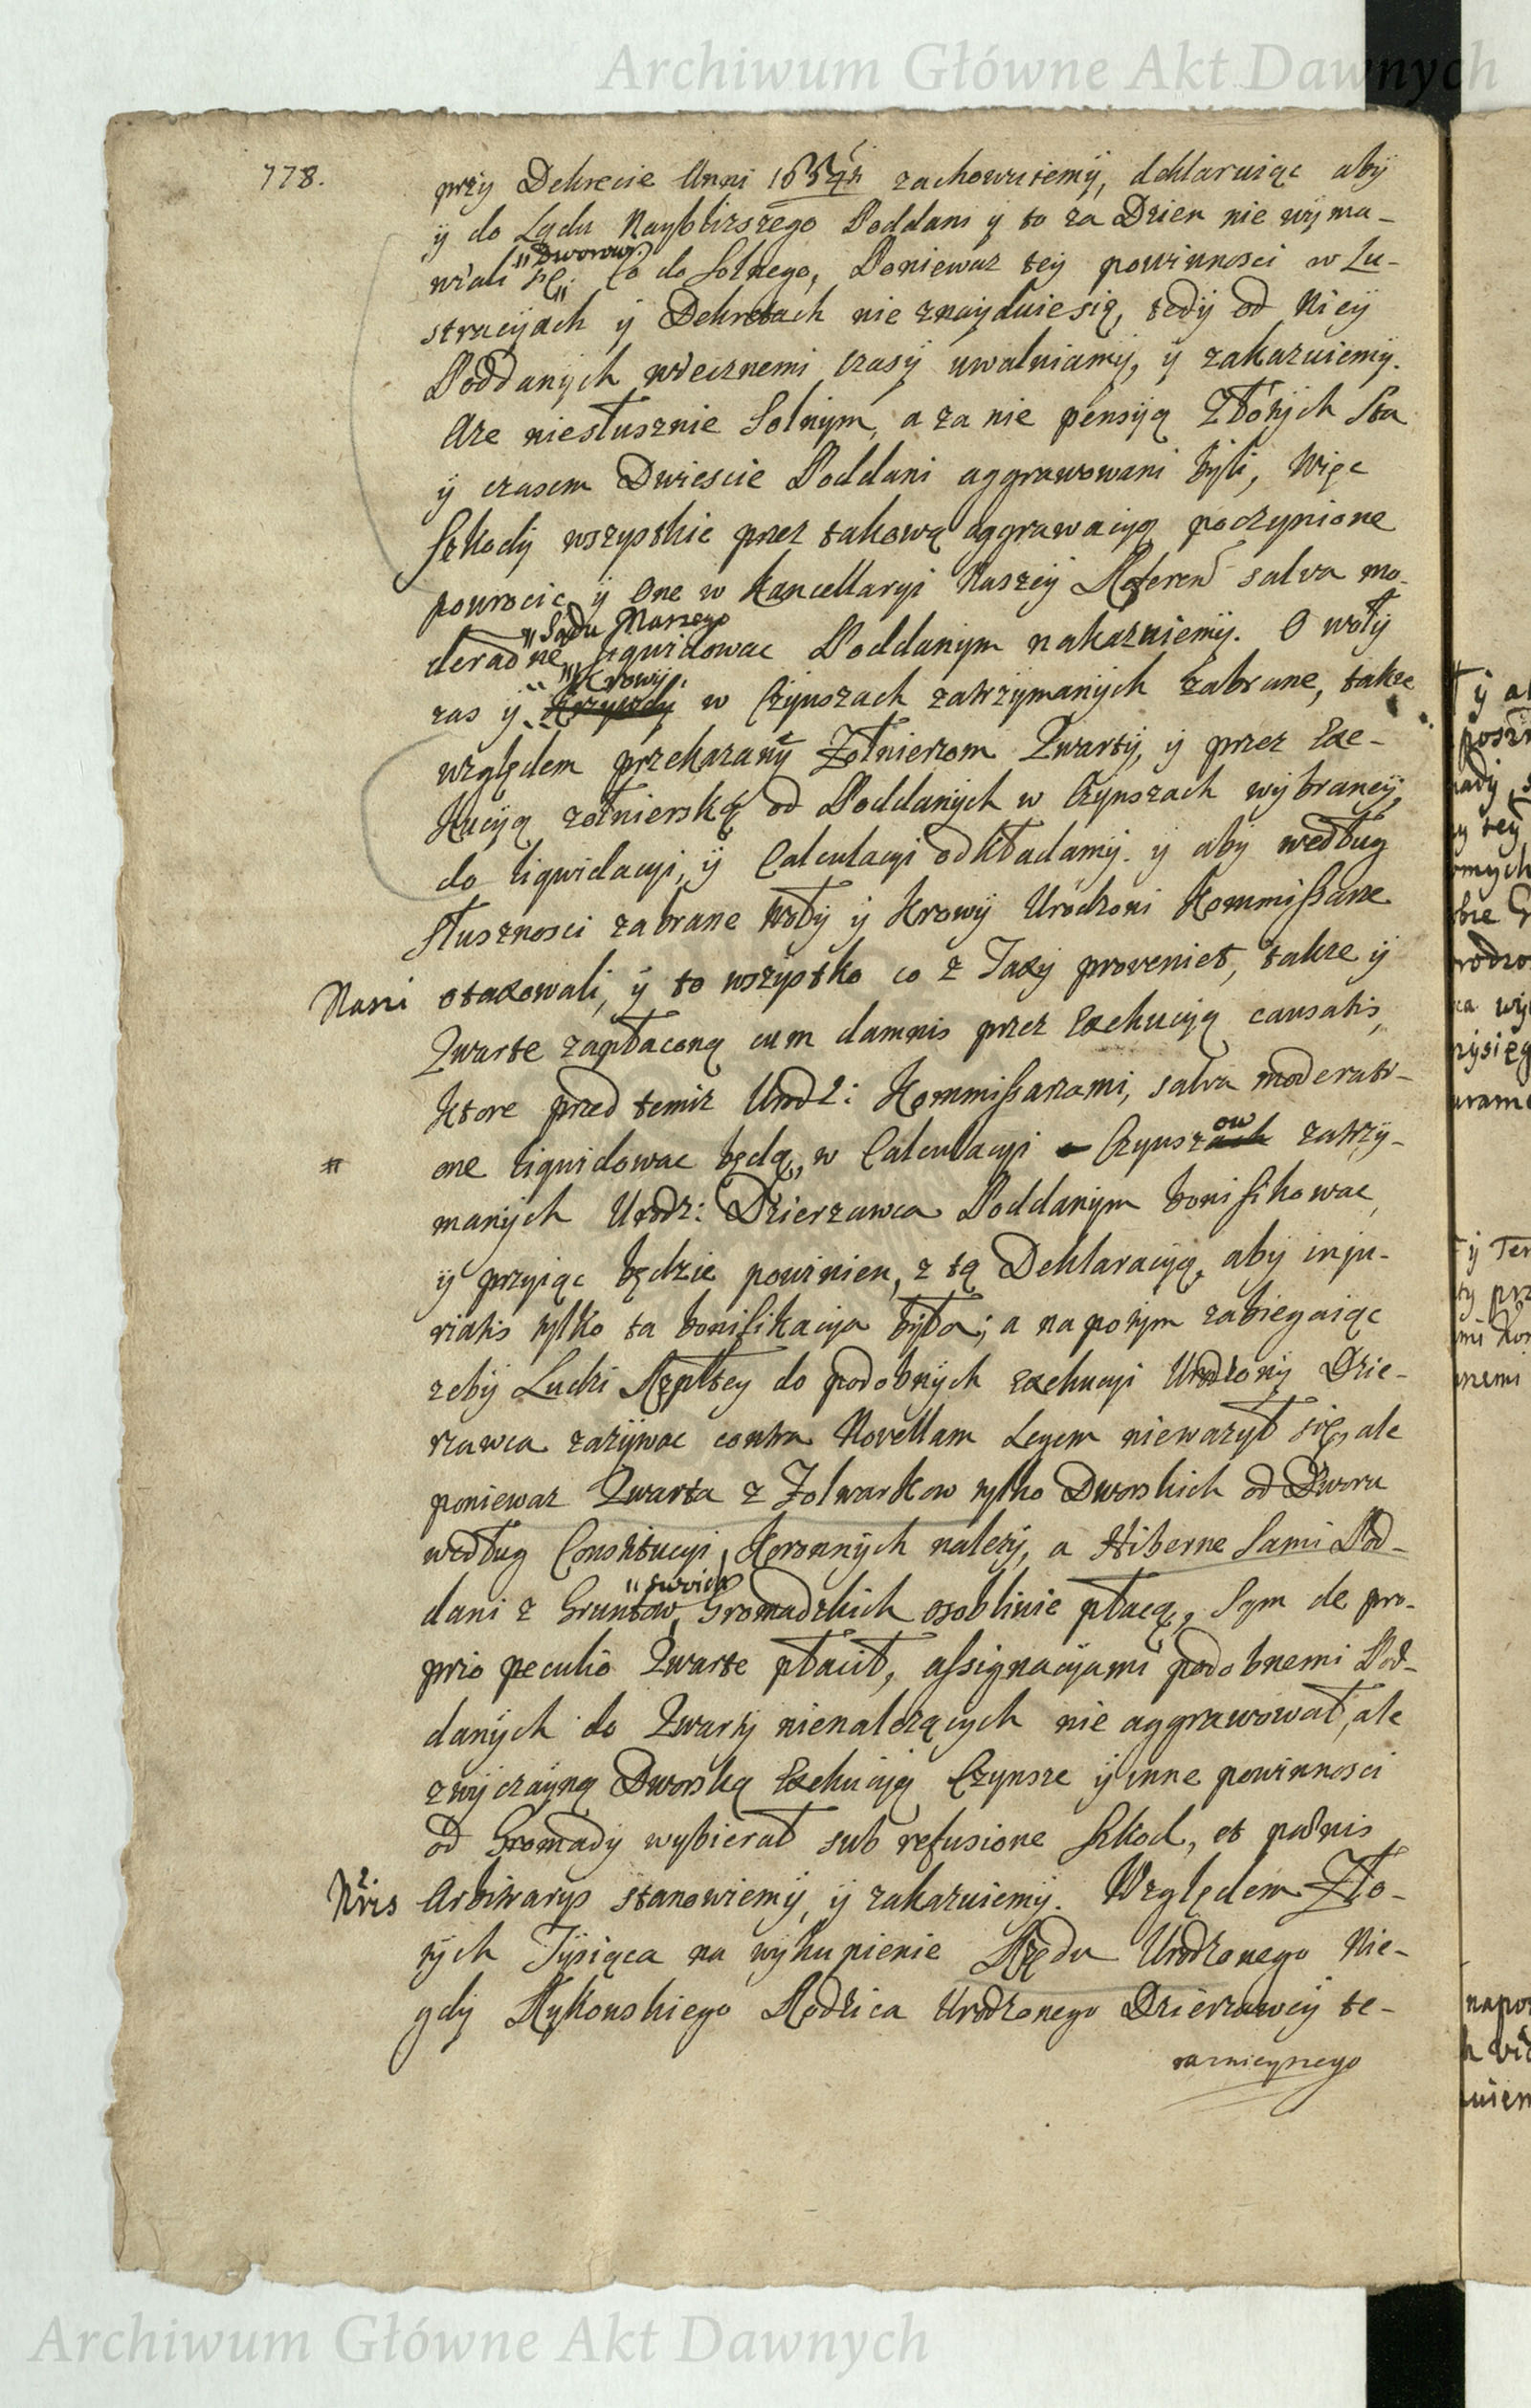 Archiwum Główne Akt Dawnych
778.
przy Dekrecie Anni 1654ti zachowuiemy, deklaruiąc aby
y do Lądu Naybliższego Poddani y to za Dzien nie wyma-
wiali się „Dworowy„ Co do Solnego, Poniewaz tey powinnosci w Lu-
stracyach y Dekretach nie znayduie się, tedy od Niey
Poddanych wiecznemi czasy uwalniamy, y zakazuiemy.
Aze niesłusznie Solnym, a za nie pensyą Złotych Sta
y czasem Dwiescie Poddani aggrawowani byli, Więc
Szkody wszystkie przez takową aggrawacyą poczynione
powrocic y One w Kancellaryi Naszey Referen salva mo-
deraone „Sądu Naszego liquidowac Poddanym nakazuiemy. O woły
zas y Krzywdy „Krowy„ w Czynszach zatrzymanych zabrane, takze
względem przekazany Zołnierzom Kwarty, y przez Exe-
kucyą zołnierską od Poddanych w Czynszach wybraney,
do liquidacyi, y Calculacyi odkładamy. y aby według
słusznosci zabrane Woły y Krowy Urodzoni Kommissarze
Nasi otaxowali, y to wszystko co z Taxy proveniet, takze y
Kwarte zapłaconą cum damnis przez Exekucyą causatis,
Ktore przed temiz Urodz: Kommissarzami, salva moderati-
# one liquidowac będą, w Calculacyi Czynszach ow zatrzy-
manych Urodz: Dzierzawca Poddanym bonifikowac,
y przyiąc będzie powinien, z tą Deklaracyą, aby inju-
riatis tylko ta bonifikacya była; a napotym zabiegaiąc
zeby Ludzi Rzpltey do podobnych exekucyi Urodzony Dzie-
rzawca zazywac contra Novellam Legem niewazył się, ale
poniewaz Kwarta z Folwarkow tylko Dworskich od Dworu
według Constitucyi Koronnych nalezy, a Hiberne Sami Pod-
dani z Gruntow „swoich Gromadzkich osobliwie płacą, Sam de pro-
prio peculio Kwarte płacił, assignacyami podobnemi Pod-
danych do Kwarty nienalezących nie aggrawował, ale
zwyczayną Dworską Exekucyą Czynsze y inne powinnosci
od Gromady wybierał sub refusione Szkod, et poenis
Nris Arbitrarys stanowiemy, y zakazuiemy. Względem Zło-
tych Tysiąca na wykupienie Rzędu Urodzonego Nie-
gdy Rykonskiego Rodzica Urodzonego Dzierzawcy te-
raznieyszego
Archiwum Główne Akt Dawnych